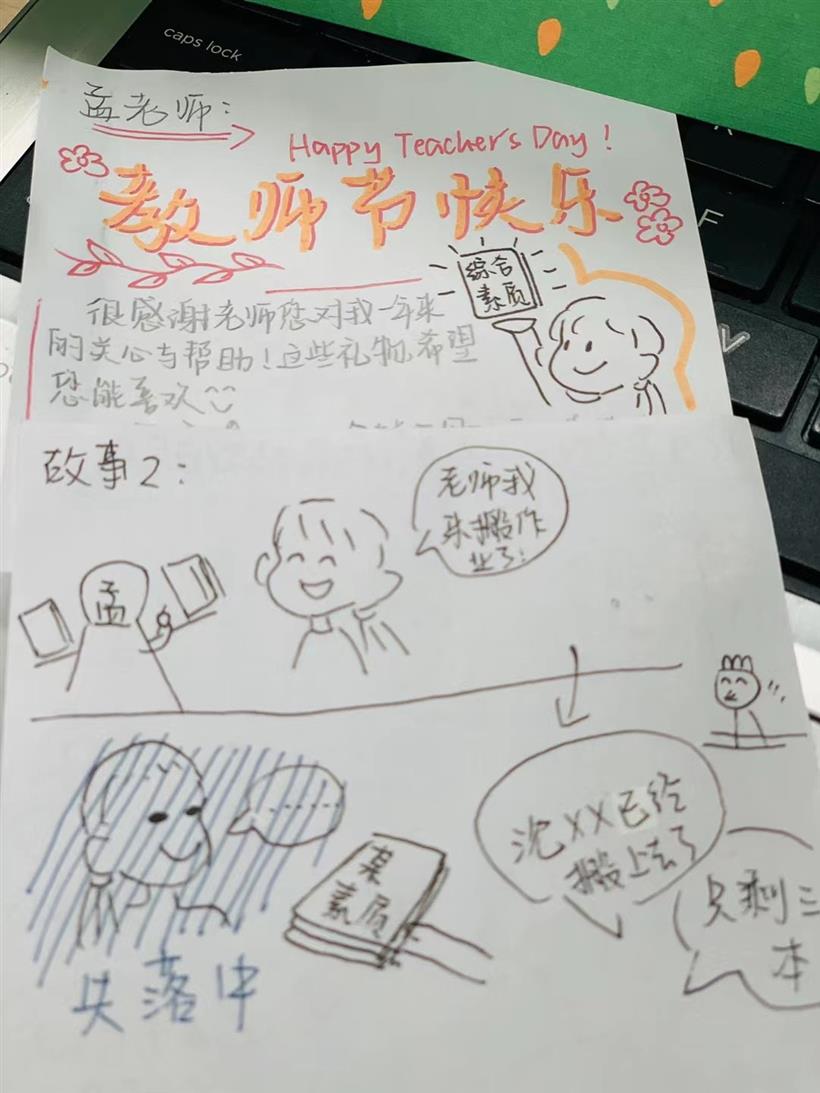 caps lock
F
V
孟老师：
Happy Teacher's Day!
教师节快乐
综合
素质
很感谢老师您对我一年来
的关心与帮助！这些礼物,希望
您能喜欢
故事2：
老师我
来搬作
业了！
孟
沈XX已经
搬上去了
只剩三
本
某
素质
失落中